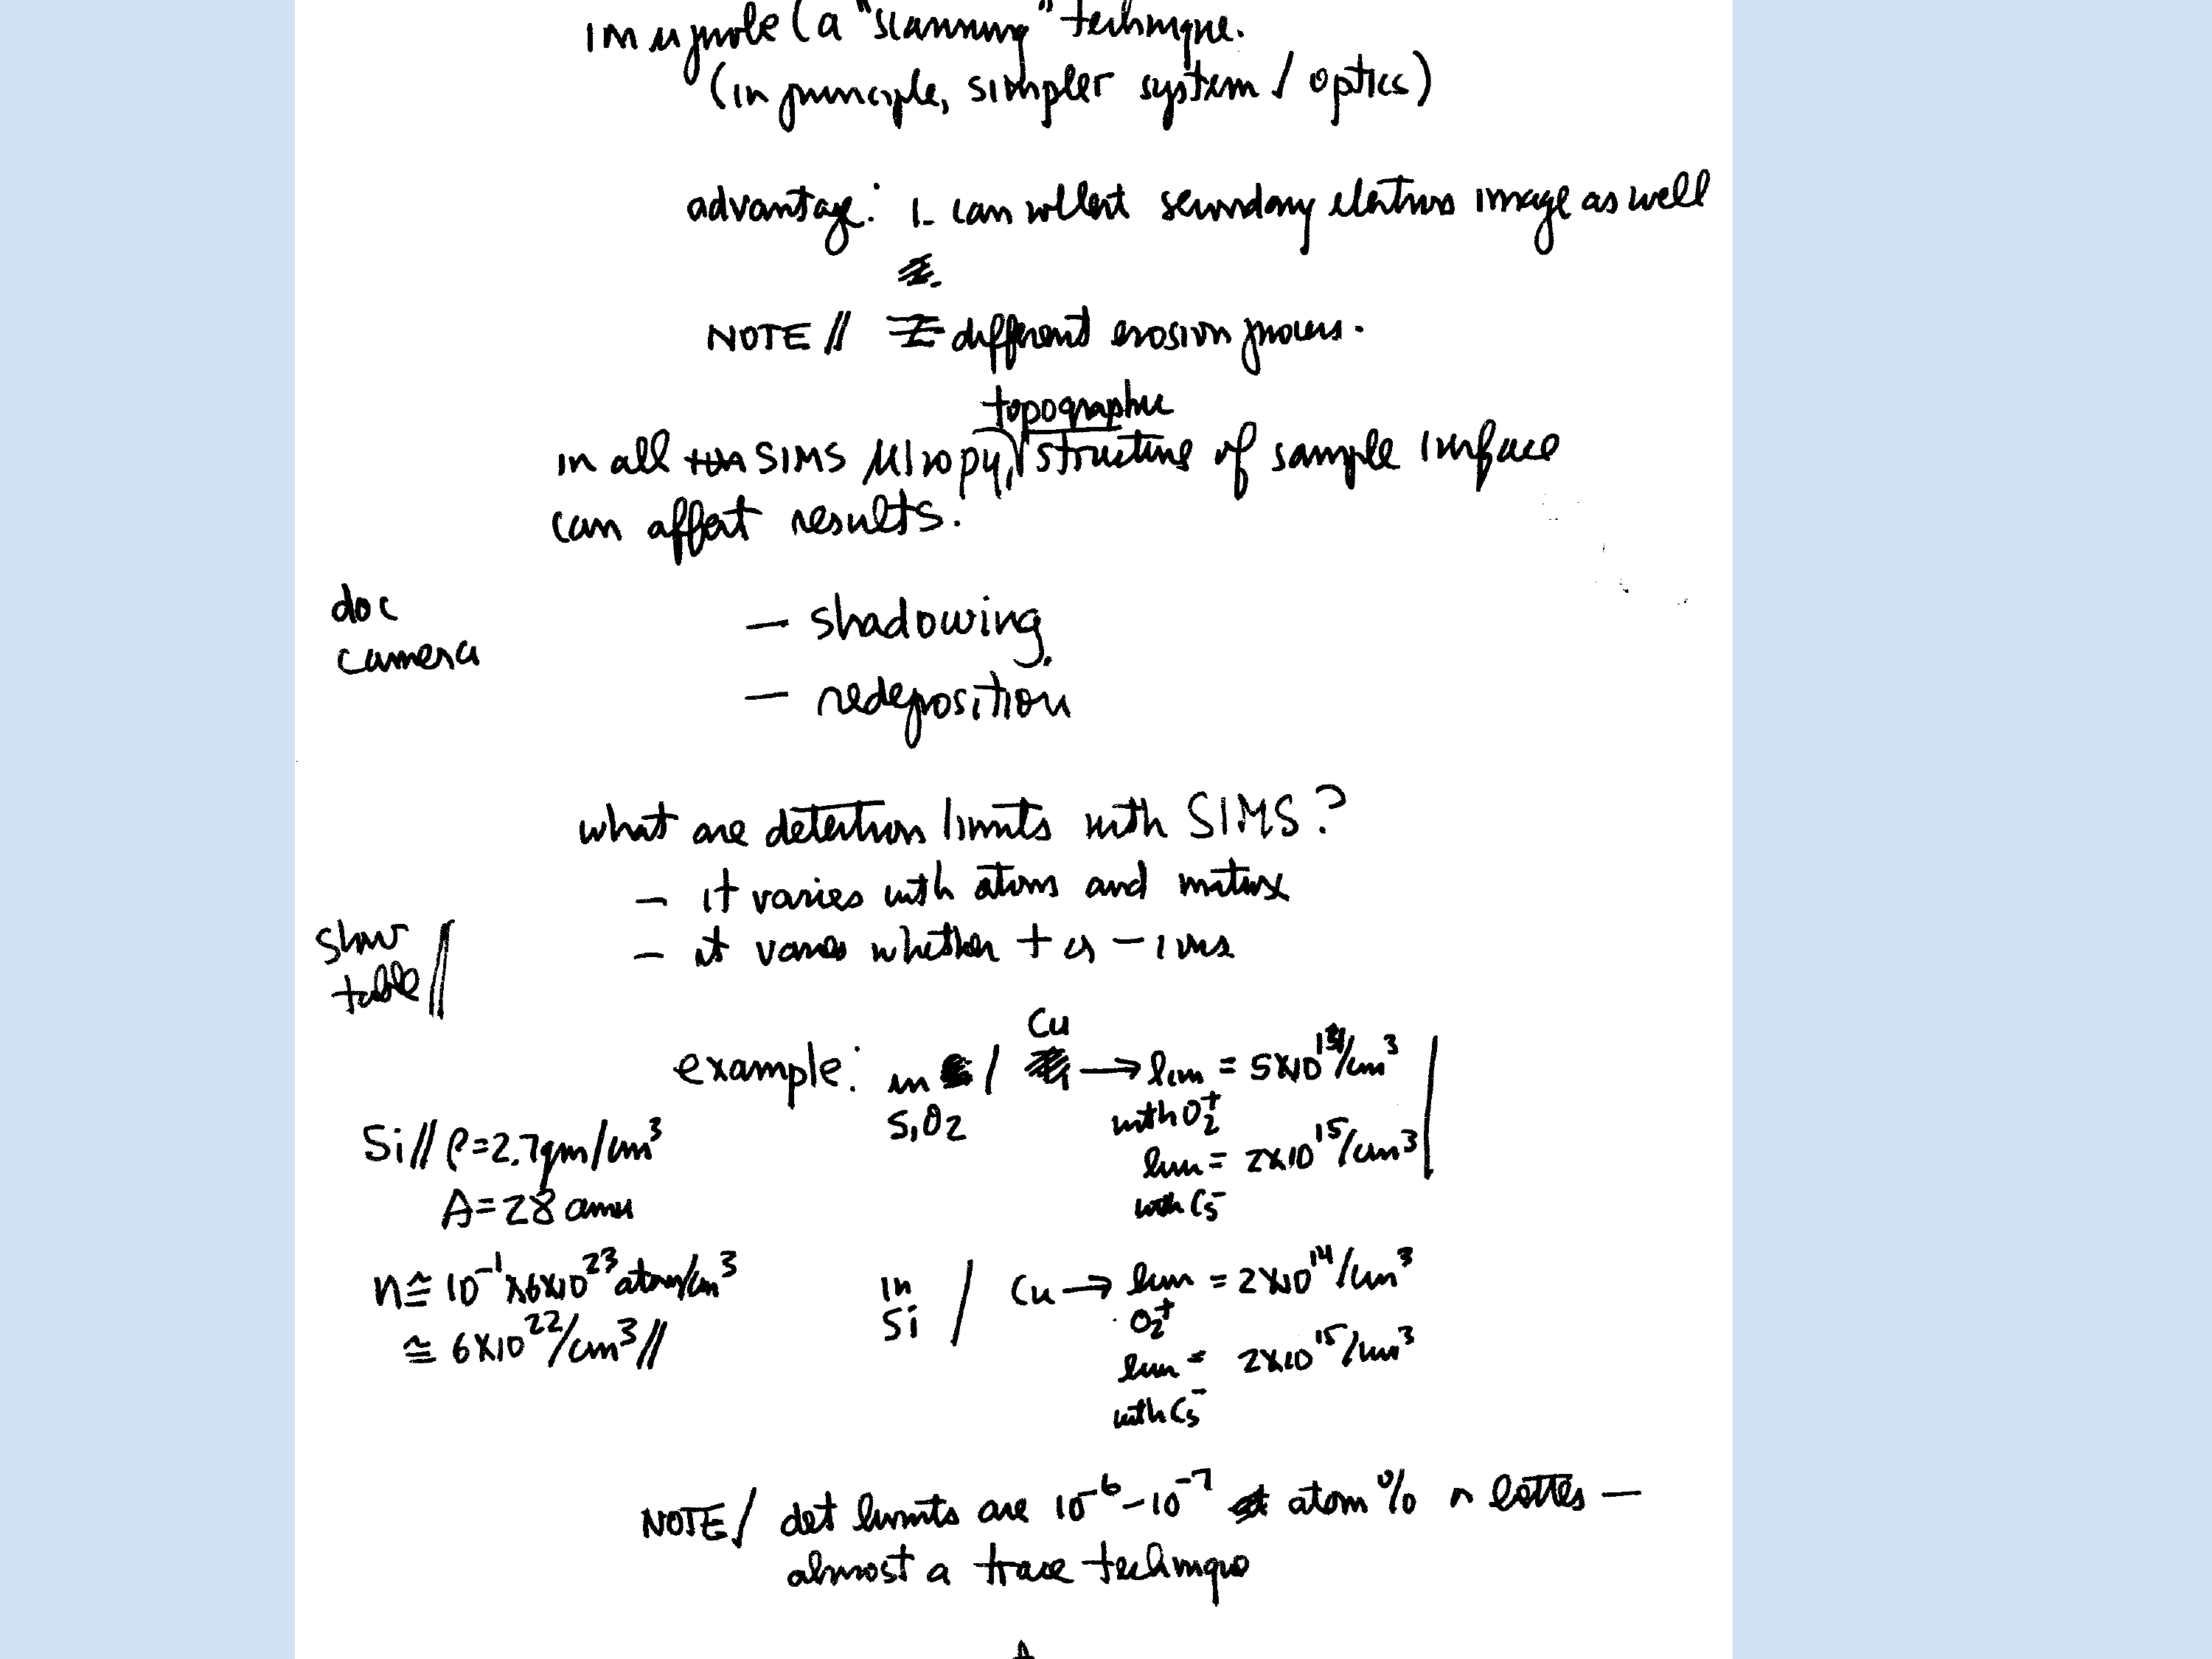 ion microprobe (a "scanning" technique.
(in principle, simpler system / optics)
advantage: 1. can collect secondary electrons image as well
NOTE // different erosion process.
topographic
in all SIMS μscopy, structure of sample surface
can affect results.
doc
camera
— shadowing
— redeposition
what are detection limits with SIMS?
— it varies with atoms and matrix
— it varies whether + or - ions
show
table //
Cu
example: in / → lim = 5x10 /cm³
SiO2 with O2⁺
lim = 2x10¹⁵/cm³
with Cs⁻
Si// ρ=2.7gm/cm³
A=28 amu
n≅ 10⁻¹x6x10²³ atom/cm³
≅ 6x10²²/cm³//
in
Si / Cu → lim = 2x10¹⁴/cm³
O2⁺
lim = 2x10¹⁵/cm³
with Cs⁻
NOTE/ det limits are 10⁻⁶-10⁻⁷ atom % or better —
almost a trace technique